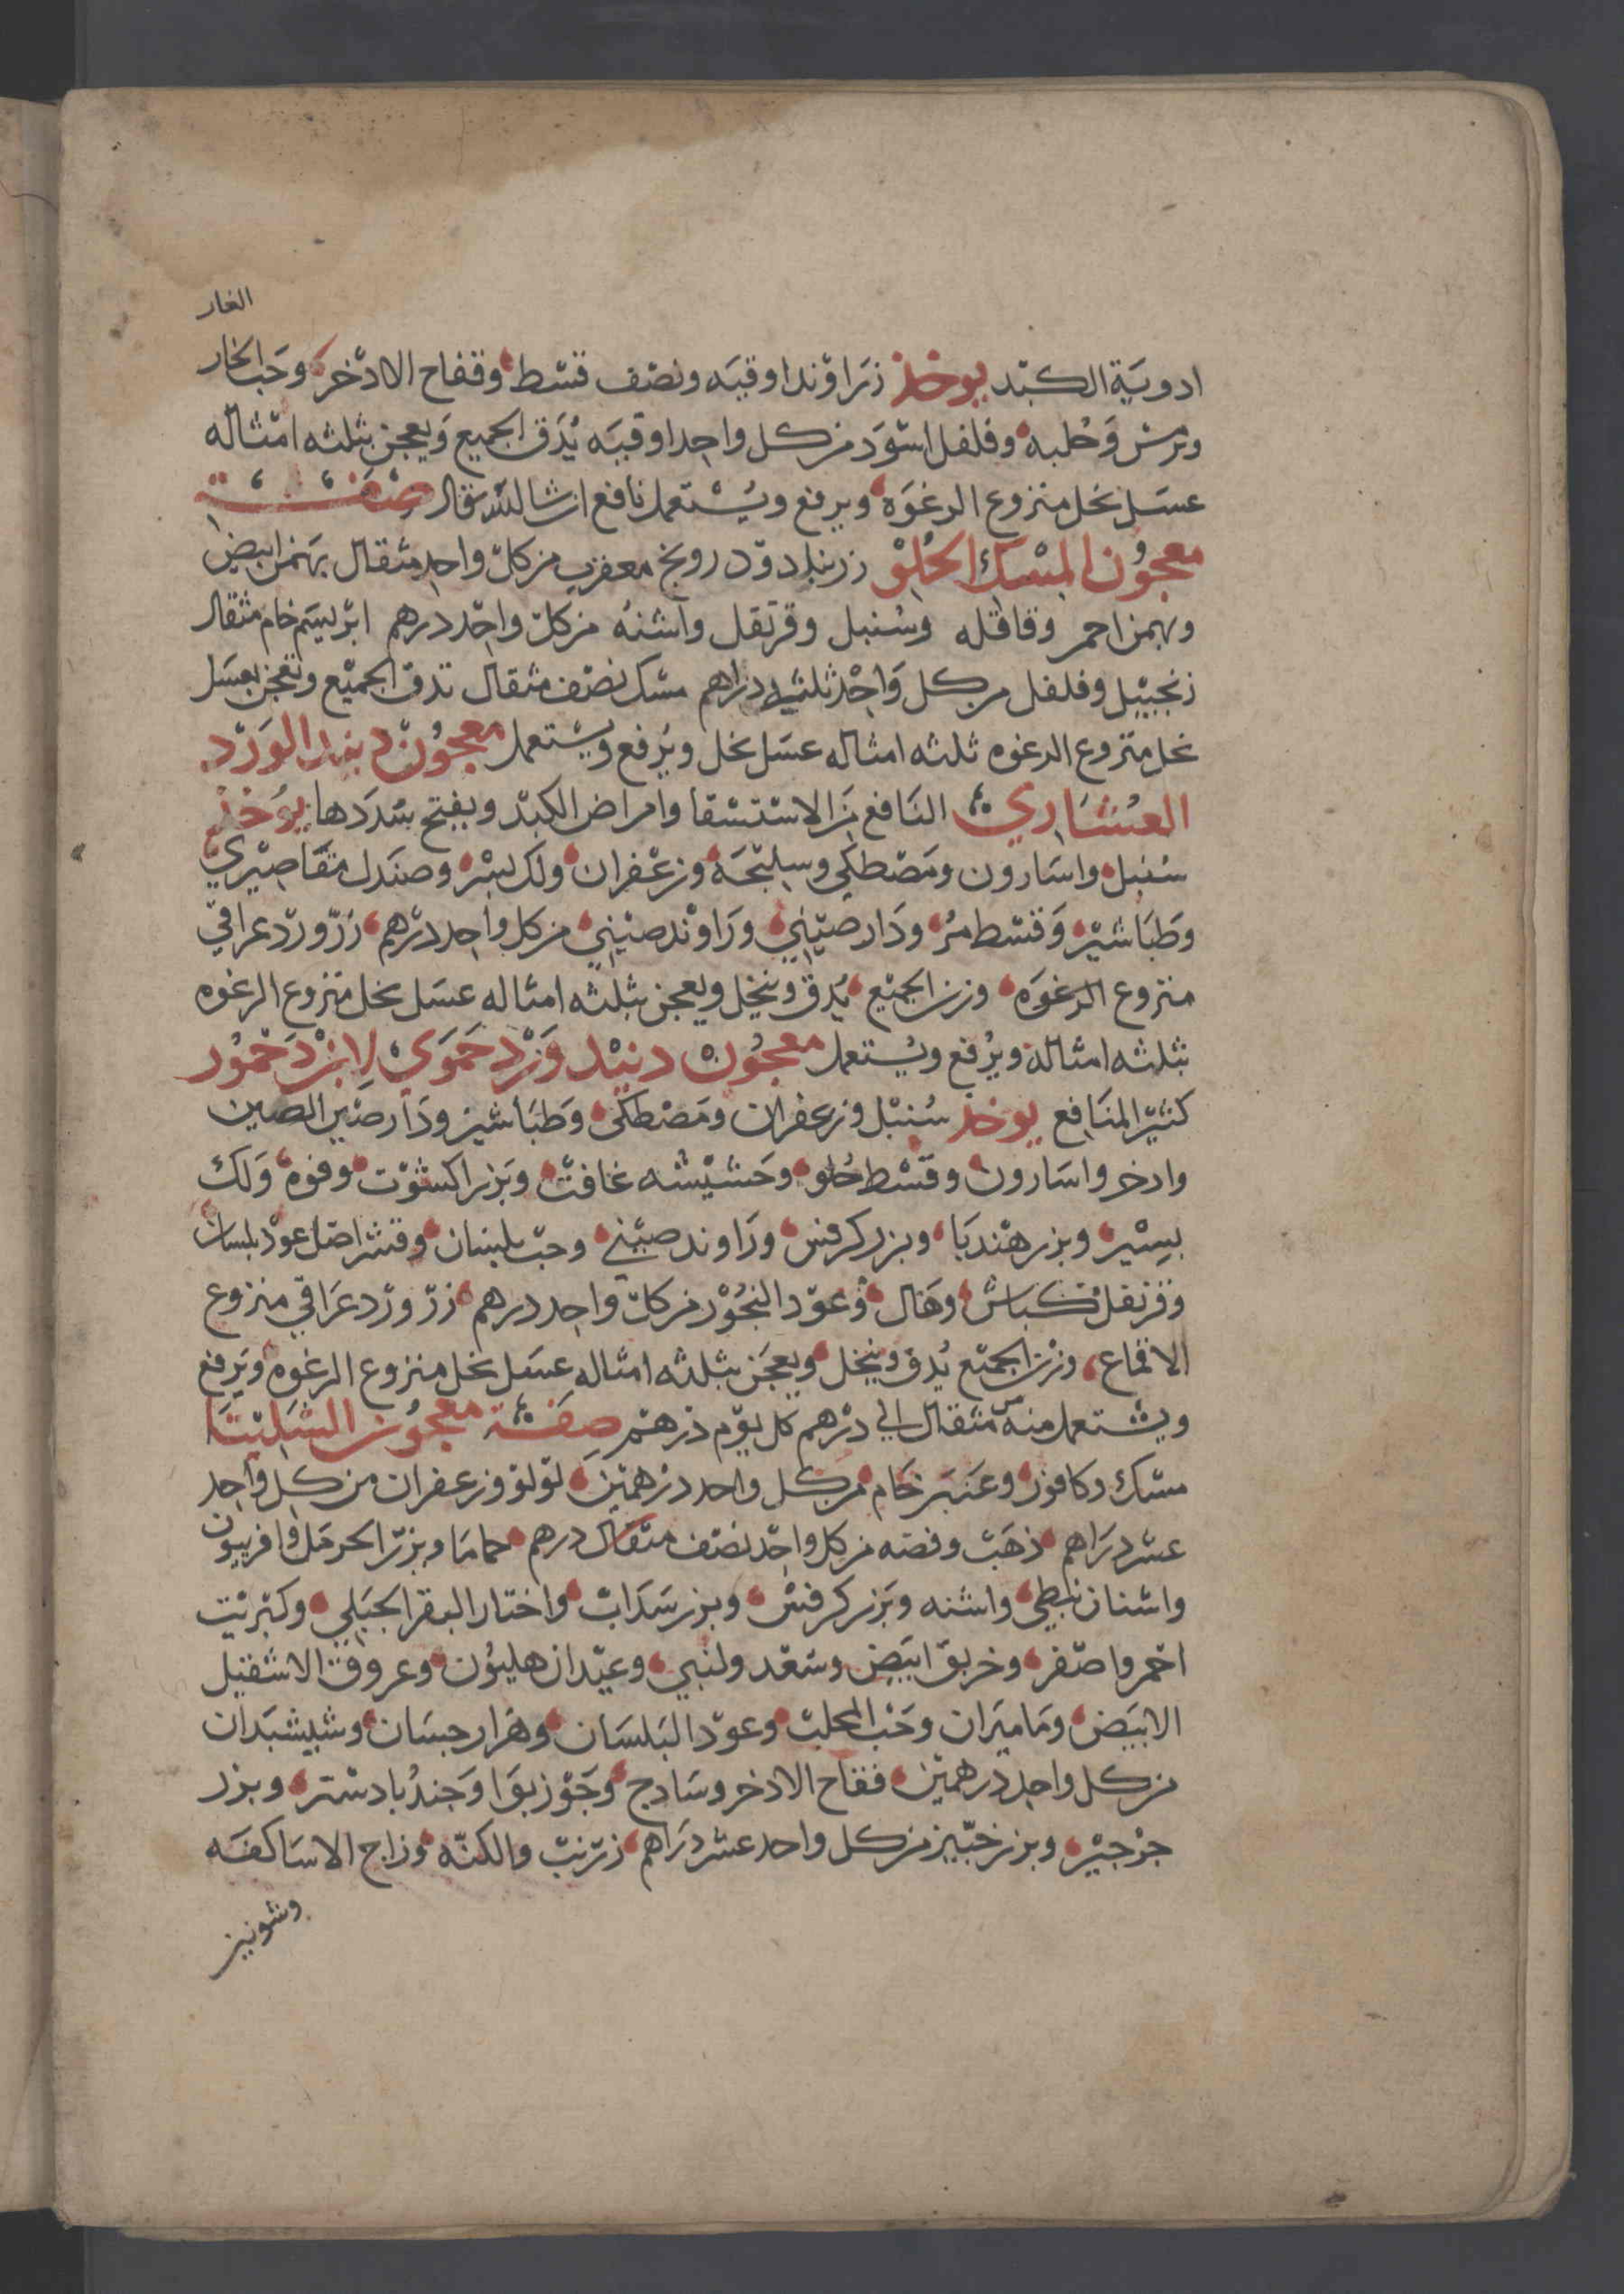 الغار
ادوية الكبد يوخذ زراوند اوقيه ونصف قسط وقفاح الادخر وحب الخار
وترمس وحلبه وفلفل اسود من كل واحد اوقيه يدق الجميع ويعجن بثلثه امثاله
عسل نحل منزوع الرغوه ويرفع ويستعمل نافع ان شا الله تعالى صفة
معجون المسك الحلو زرنباد ودرونج معقرب من كل واحد مثقال بهمن ابيض
وبهمن احمر وقاقله وسنبل وقرنفل واشنه من كل واحد درهم ابريسم خام مثقال
زنجبيل وفلفل من كل واحد ثلثه دراهم مسك نصف مثقال تدق الجميع وتعجن بعسل
نحل منزوع الرغوه ثلثه امثاله عسل نحل ويرفع ويستعمل معجون دنيد الورد
العشاري النافع من الاستسقا وامراض الكبد ويفتح سددها يوخذ
سنبل واسارون ومصطكى وسليخة وزعفران ولك بسر وصندل مقاصيري
وطباشير وقسط مر ودار صيني وراوند صيني من كل واحد درهم زر ورد عراقي
منزوع الرغوه وزن الجميع يدق وينخل ويعجن بثلثه امثاله عسل نحل منزوع الرغوه
بثلثه امثاله ويرفع ويستعمل معجون دنيد ورد حموي لابن دخمور
كثير المنافع يوخذ سنبل وزعفران ومصطكى وطباشير ودارصين الصين
وادخر واسارون وقسط حلو وحشيشه غافت وبزر اكشوت وفوه ولك
بسير وبزر هندبا وبزر كرفس وراوند صيني وحب بلسان وقشر اصل عود بلسان
وقرنفل كباش وهال وعود البخور من كل واحد درهم زر ورد عراقي منزوع
الاقماع وزن الجميع يدق وينخل ويعجن بثلثه امثاله عسل نحل منزوع الرغوه ويرفع
ويستعمل منه من مثقال الي درهم كل يوم درهم صفة معجون الشليثا
مسك وكافور وعنبر خام من كل واحد درهمين لولو وزعفران من كل واحد
عشر دراهم ذهب وفضه من كل واحد نصف مثقال درهم حماما وبزر الحرمل وافربيون
واشنان نبطي واشنه وبزر كرفس وبزر سداب واختار البقر الجبلي وكبريت
احمر واصفر وخربق ابيض وسعد ولبني وعيدان هليون وعروق الاشقيل
الابيض وماميران وحب المحلب وعود البلسان وهزار جسان وشيشبدان
من كل واحد درهمين فقاح الادخر وسادج وجوز بوا وجندبادستر وبزر
جرجير وبزر خبيز من كل واحد عشر دراهم زرنب والكنه وزاج الاساكفه
وشونيز